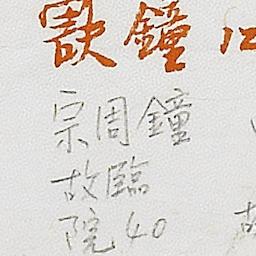 㝬鐘 12
宗周鐘
故臨
院40 故